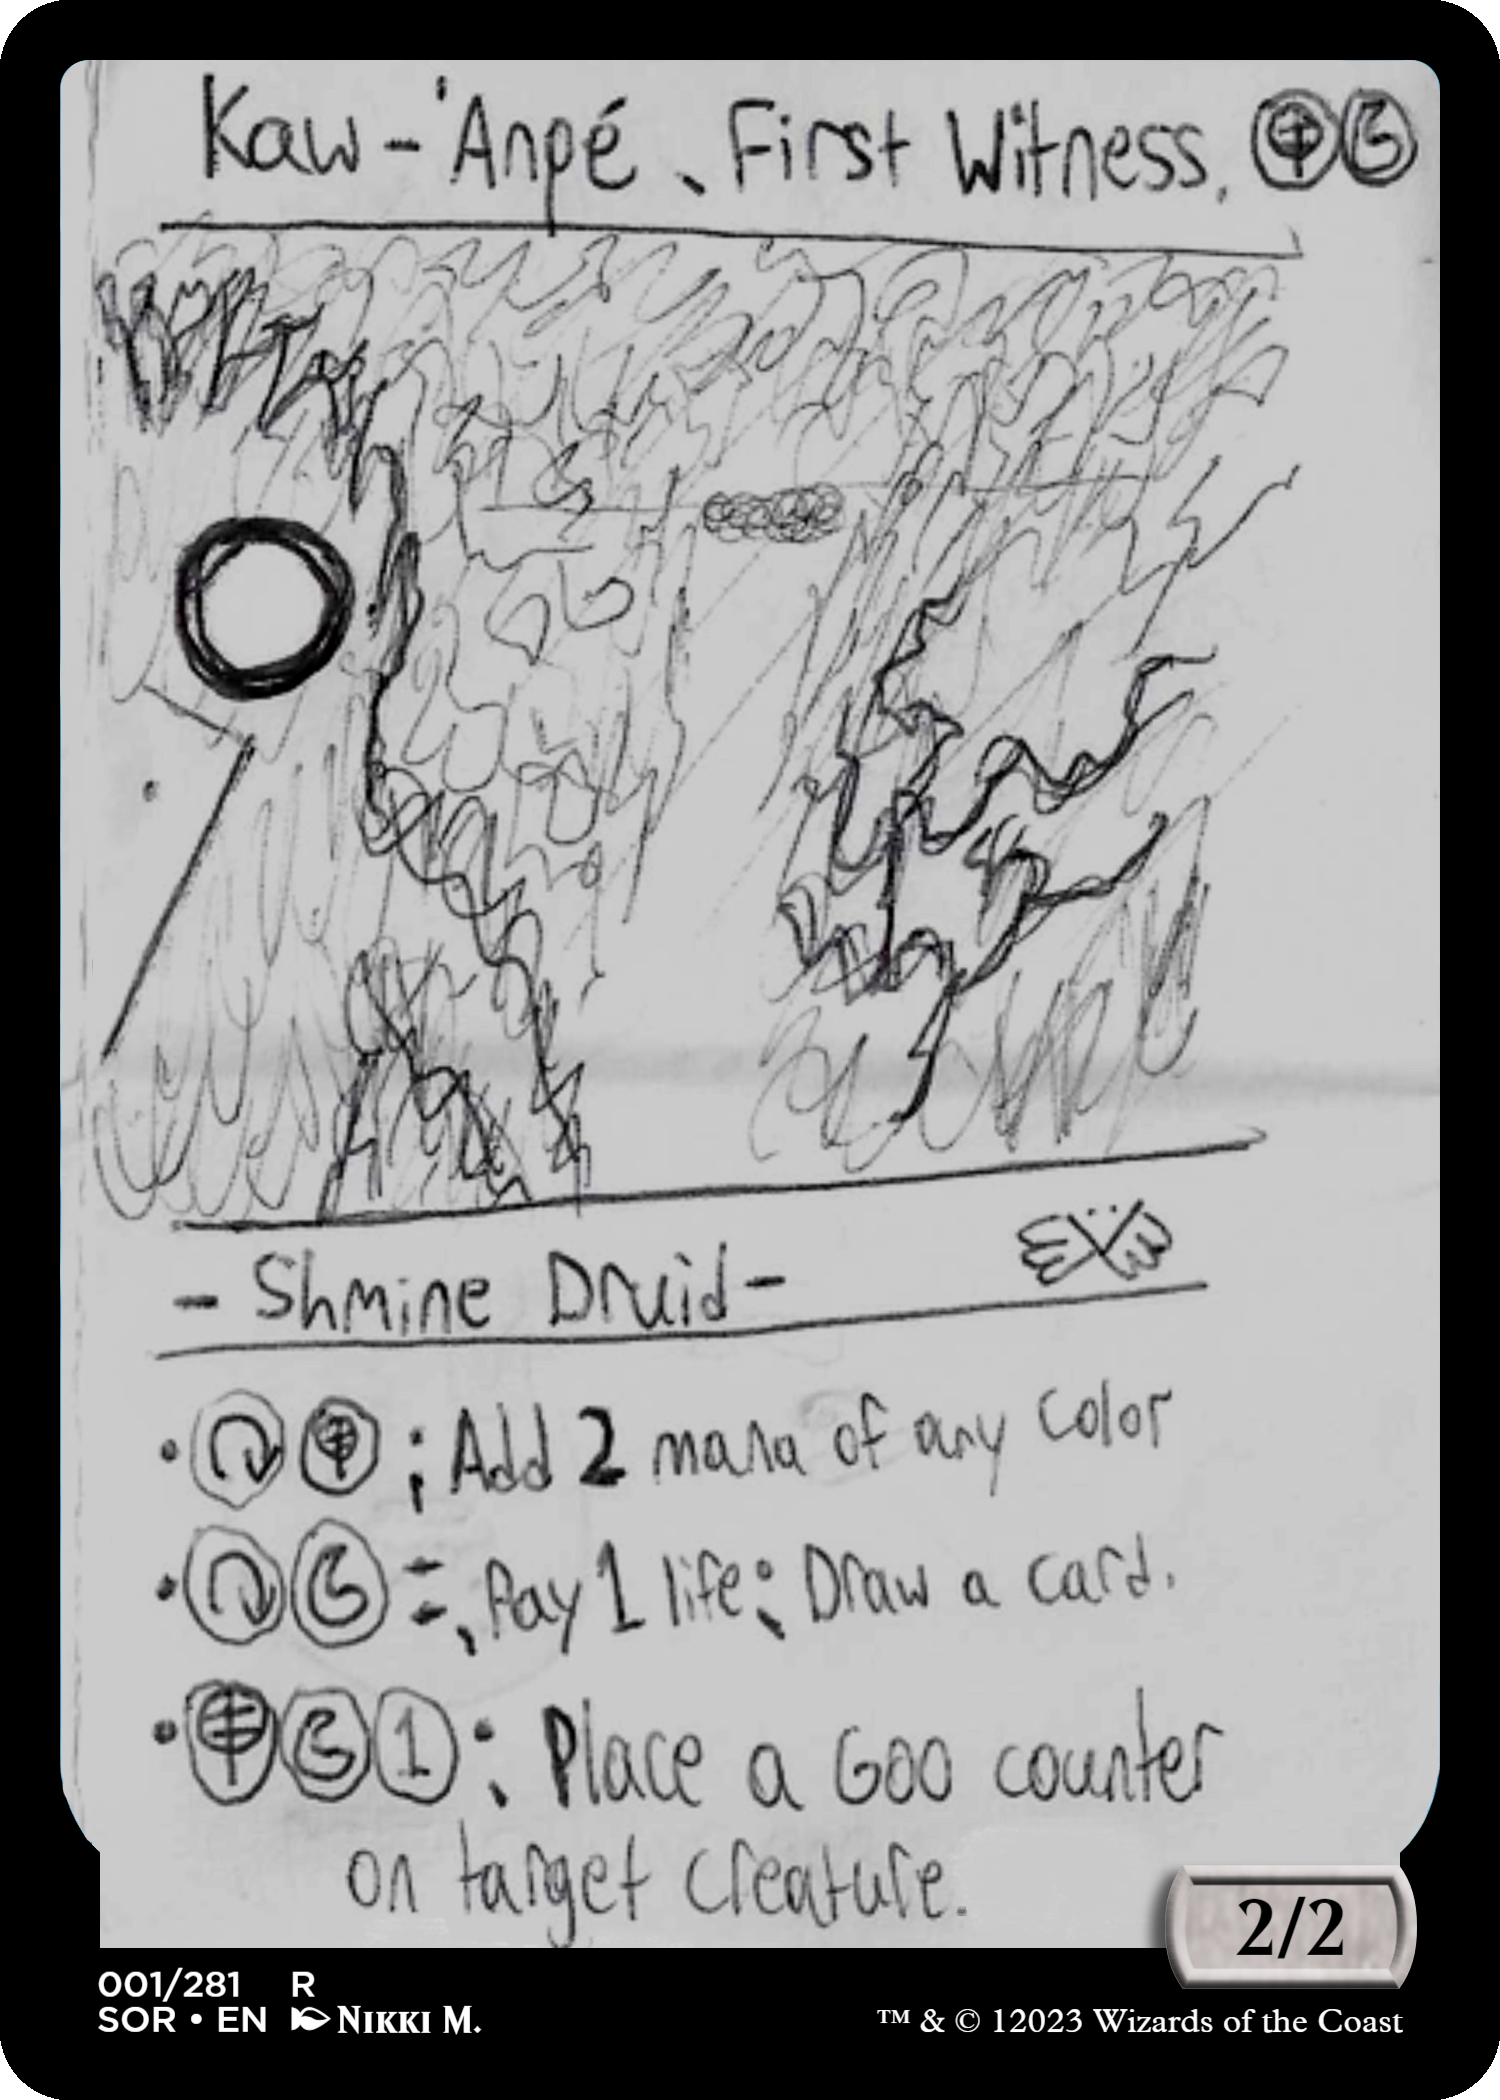 Kaw-'Anpé, First Witness.
- Shmine Druid -
• : Add 2 mana of any color
• =, Pay 1 life: Draw a card.
• 1 : Place a Goo counter
on target creature.
2/2
001/281 R
SOR • EN NIKKI M.
™ & © 12023 Wizards of the Coast